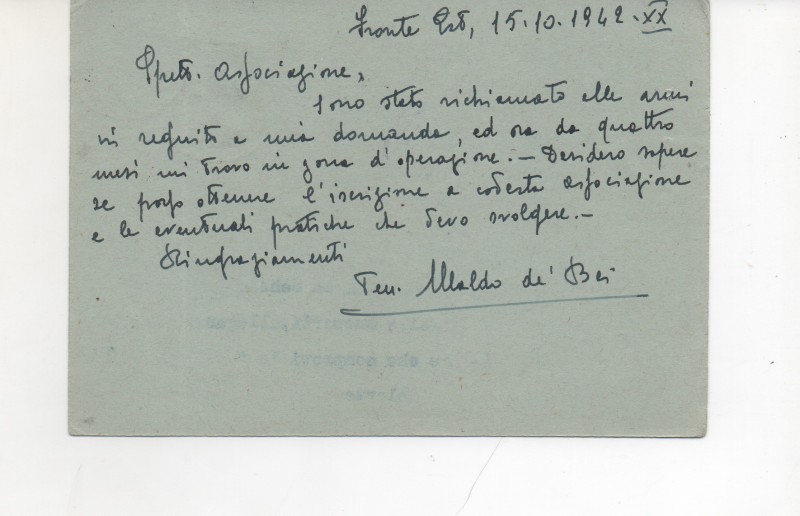 Fronte Est, 15.10.1942.XX
Spett. Associazione,
Sono stato richiamato alle armi
in seguito a mia domanda, ed ora da quattro
mesi mi trovo in zona d'operazione. — Desidero sapere
se posso ottenere l'iscrizione a codesta Associazione
e le eventuali pratiche che devo svolgere. —
Ringraziamenti
Ten. Ubaldo de' Bei